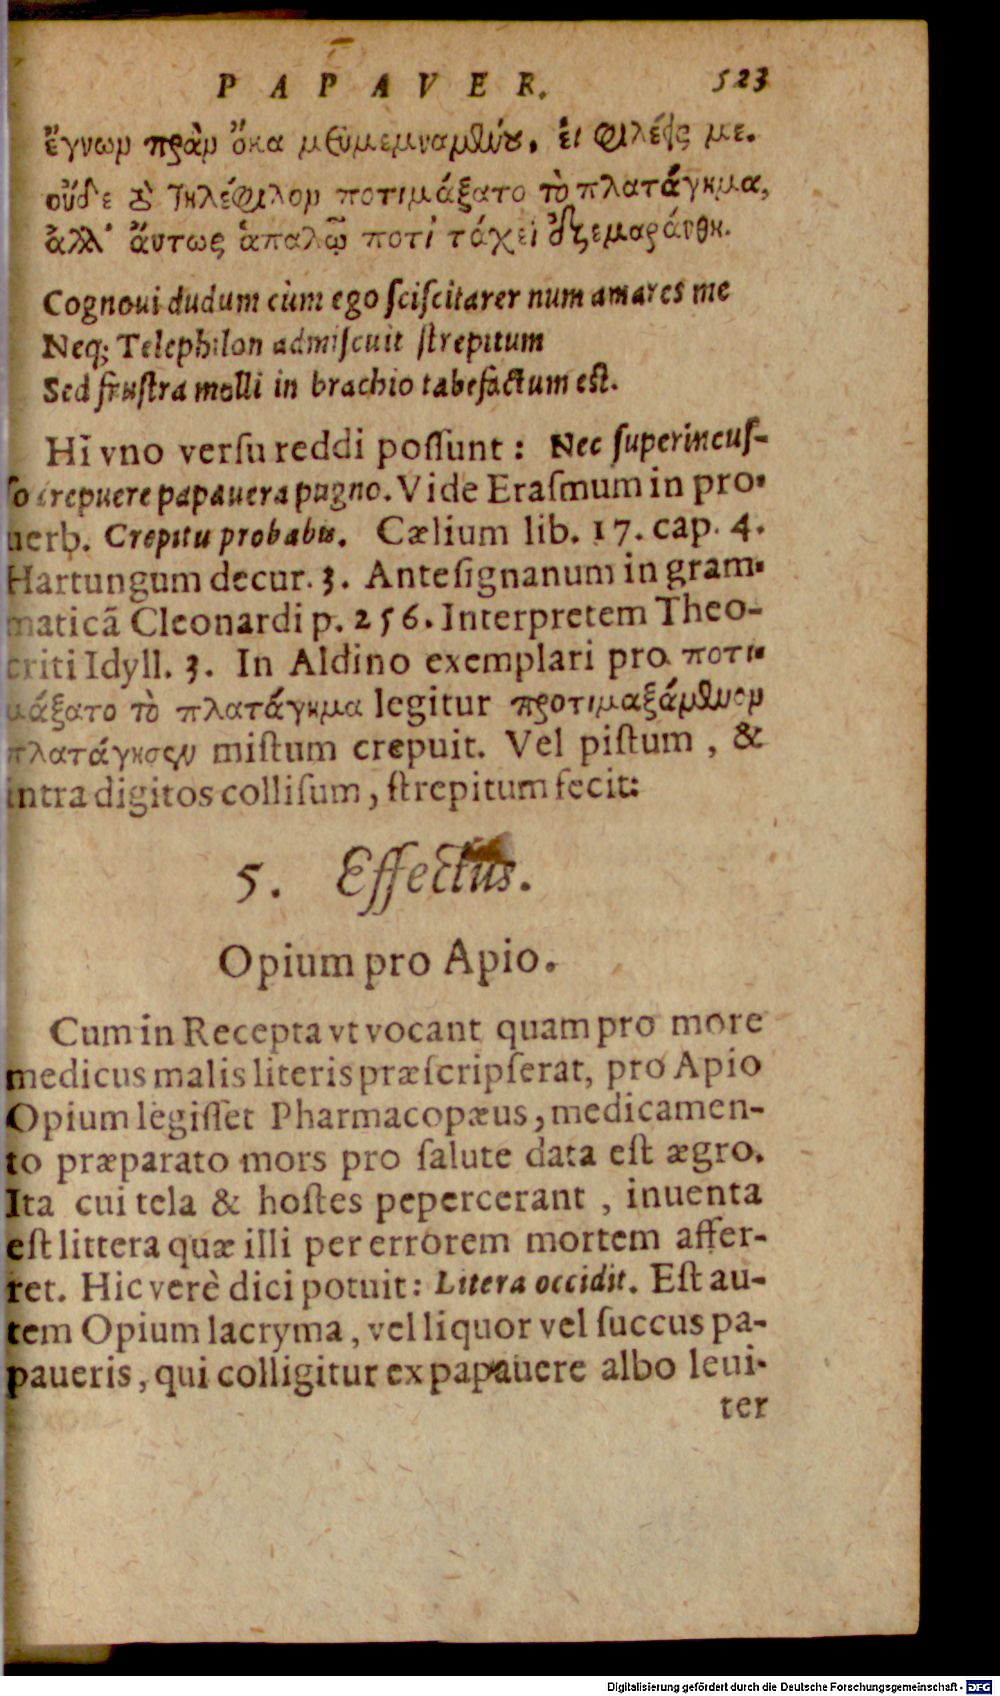 PAPAVER. 523
ἔγνωμ πρὰν ὅκα μευμεμναμένου. εἰ φιλέεις με.
οὐδὲ τὸ τηλέφιλον ποτιμάξατο τὸ πλατάγημα,
ἀλλ' αὔτως ἁπαλῷ ποτὶ τάχει ἐξεμαράνθη.
Cognoui dudum cùm ego sciscitarer num amares me
Neq; Telephilon admiscuit strepitum
Sed frustra molli in brachio tabefactum est.
Hi vno versu reddi possunt: Nec superincus-
so crepuere papauera pugno. Vide Erasmum in pro-
uerb. Crepitu probabis. Cælium lib. 17. cap. 4.
Hartungum decur. 3. Antesignanum in gram-
maticã Cleonardi p. 256. Interpretem Theo-
criti Idyll. 3. In Aldino exemplari pro ποτι-
μάξατο τὸ πλατάγημα legitur προτιμαξάμενον
πλατάγησεν mistum crepuit. Vel pistum, &
intra digitos collisum, strepitum fecit:
5. Effectus.
Opium pro Apio.
Cum in Recepta vt vocant quam pro more
medicus malis literis præscripserat, pro Apio
Opium legisset Pharmacopæus, medicamen-
to præparato mors pro salute data est ægro.
Ita cui tela & hostes pepercerant, inuenta
est littera quæ illi per errorem mortem affer-
ret. Hic verè dici potuit: Litera occidit. Est au-
tem Opium lacryma, vel liquor vel succus pa-
paueris, qui colligitur ex papauere albo leui-
ter
Digitalisierung gefördert durch die Deutsche Forschungsgemeinschaft - DFG